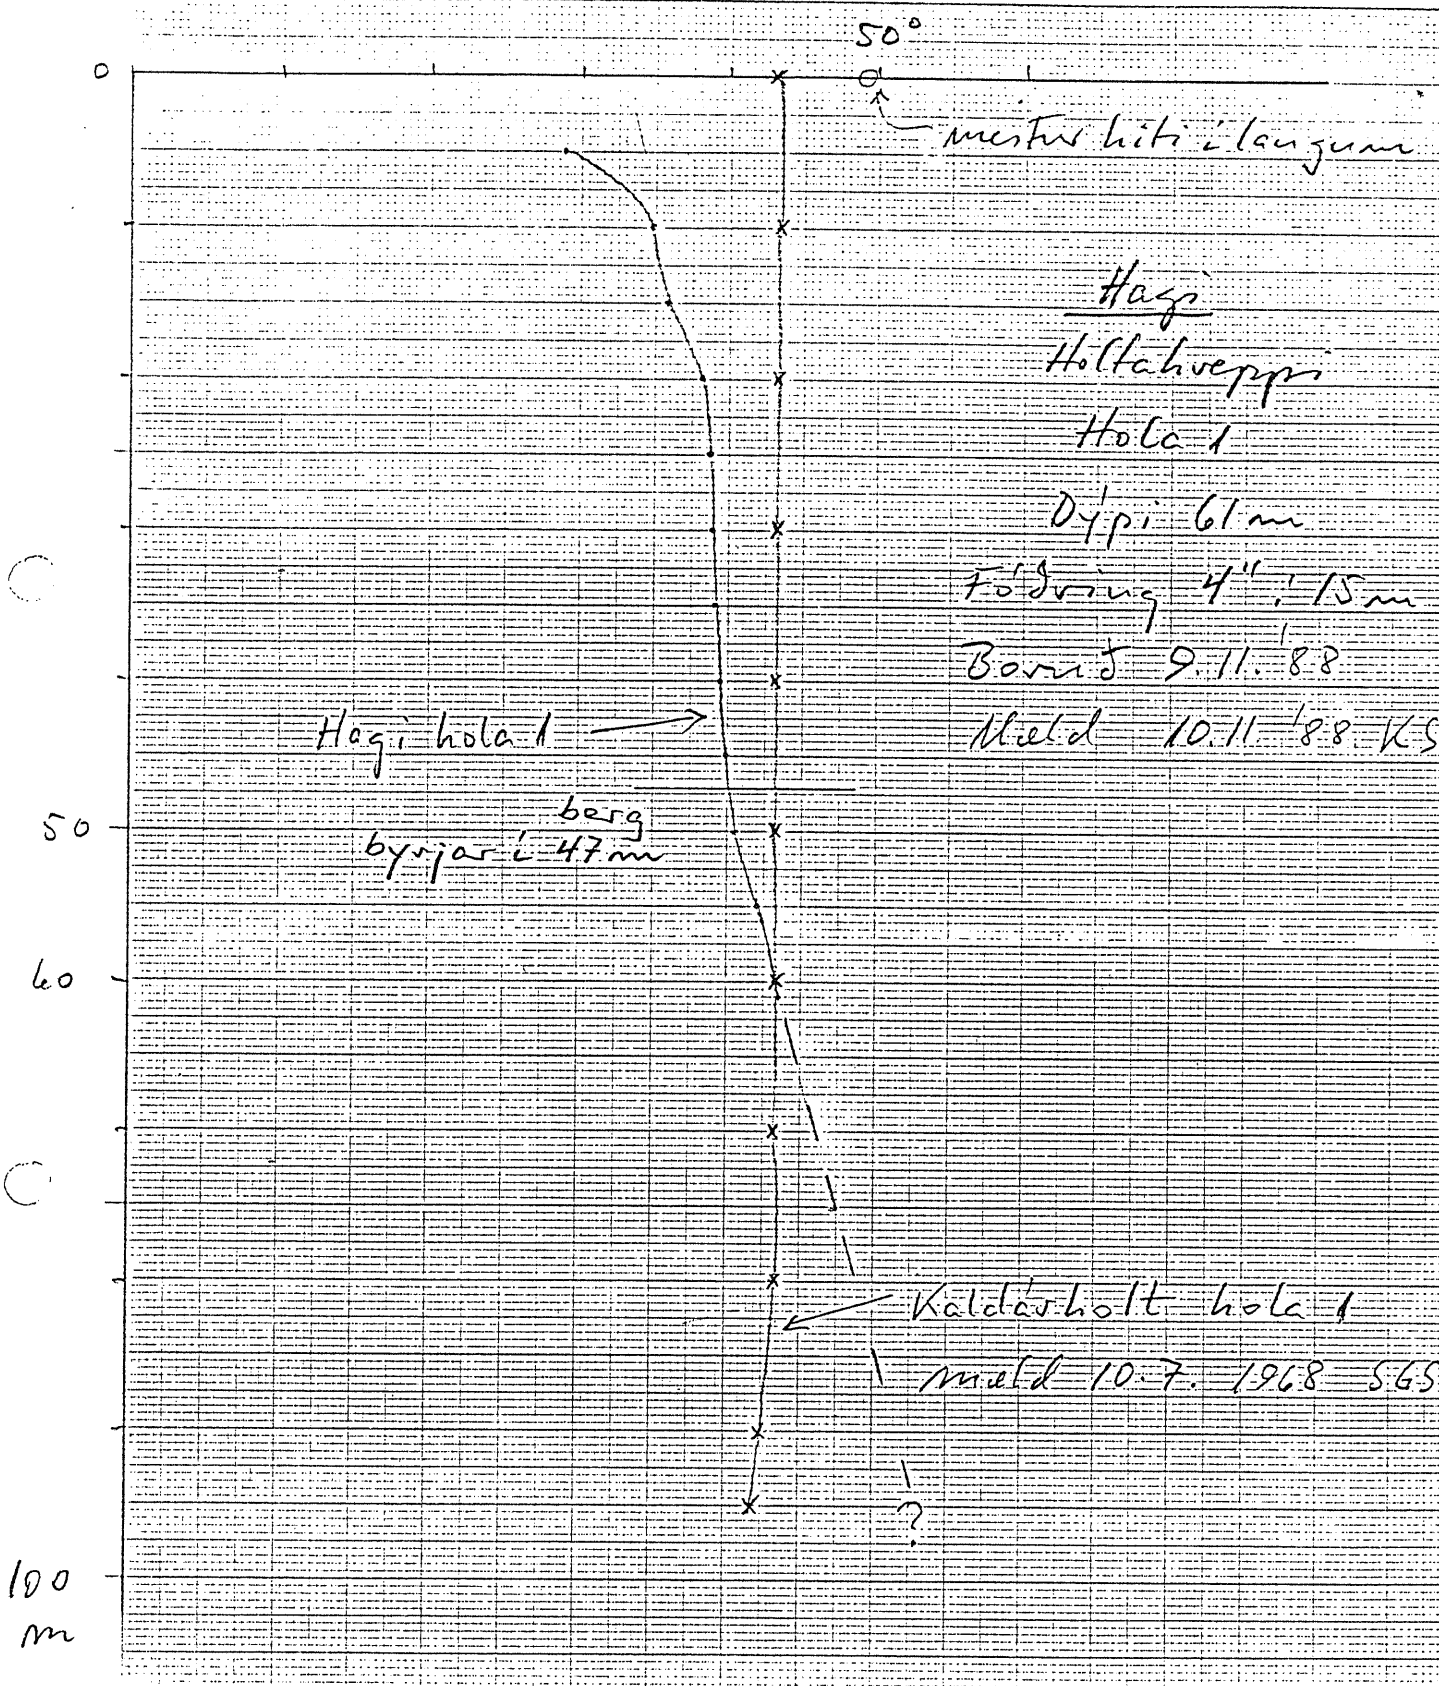 50°
0
mestur hiti í laugum
Hagi
Holtahreppi
Hola 1
Dýpi 61 m
Fóðring 4" í 15 m
Boruð 9.11. '88
Mæld 10.11 '88 KS
Hagi hola 1
berg
byrjar í 47 m
50
60
Kaldárholt hola 1
mæld 10.7. 1968 SGS
?
100
m